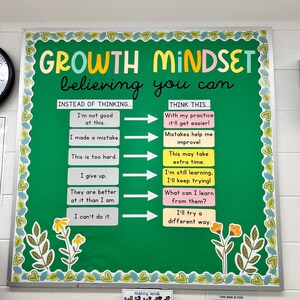 GROWTH MINDSET
believing you can
INSTEAD OF THINKING...
THINK THIS...
I'm not good
at this.
With my practice
it'll get easier!
I made a mistake.
Mistakes help me
improve!
This is too hard.
This may take
extra time.
I give up.
I'm still learning,
I'll keep trying!
They are better
at it than I am.
What can I learn
from them?
I can't do it.
I'll try a
different way.